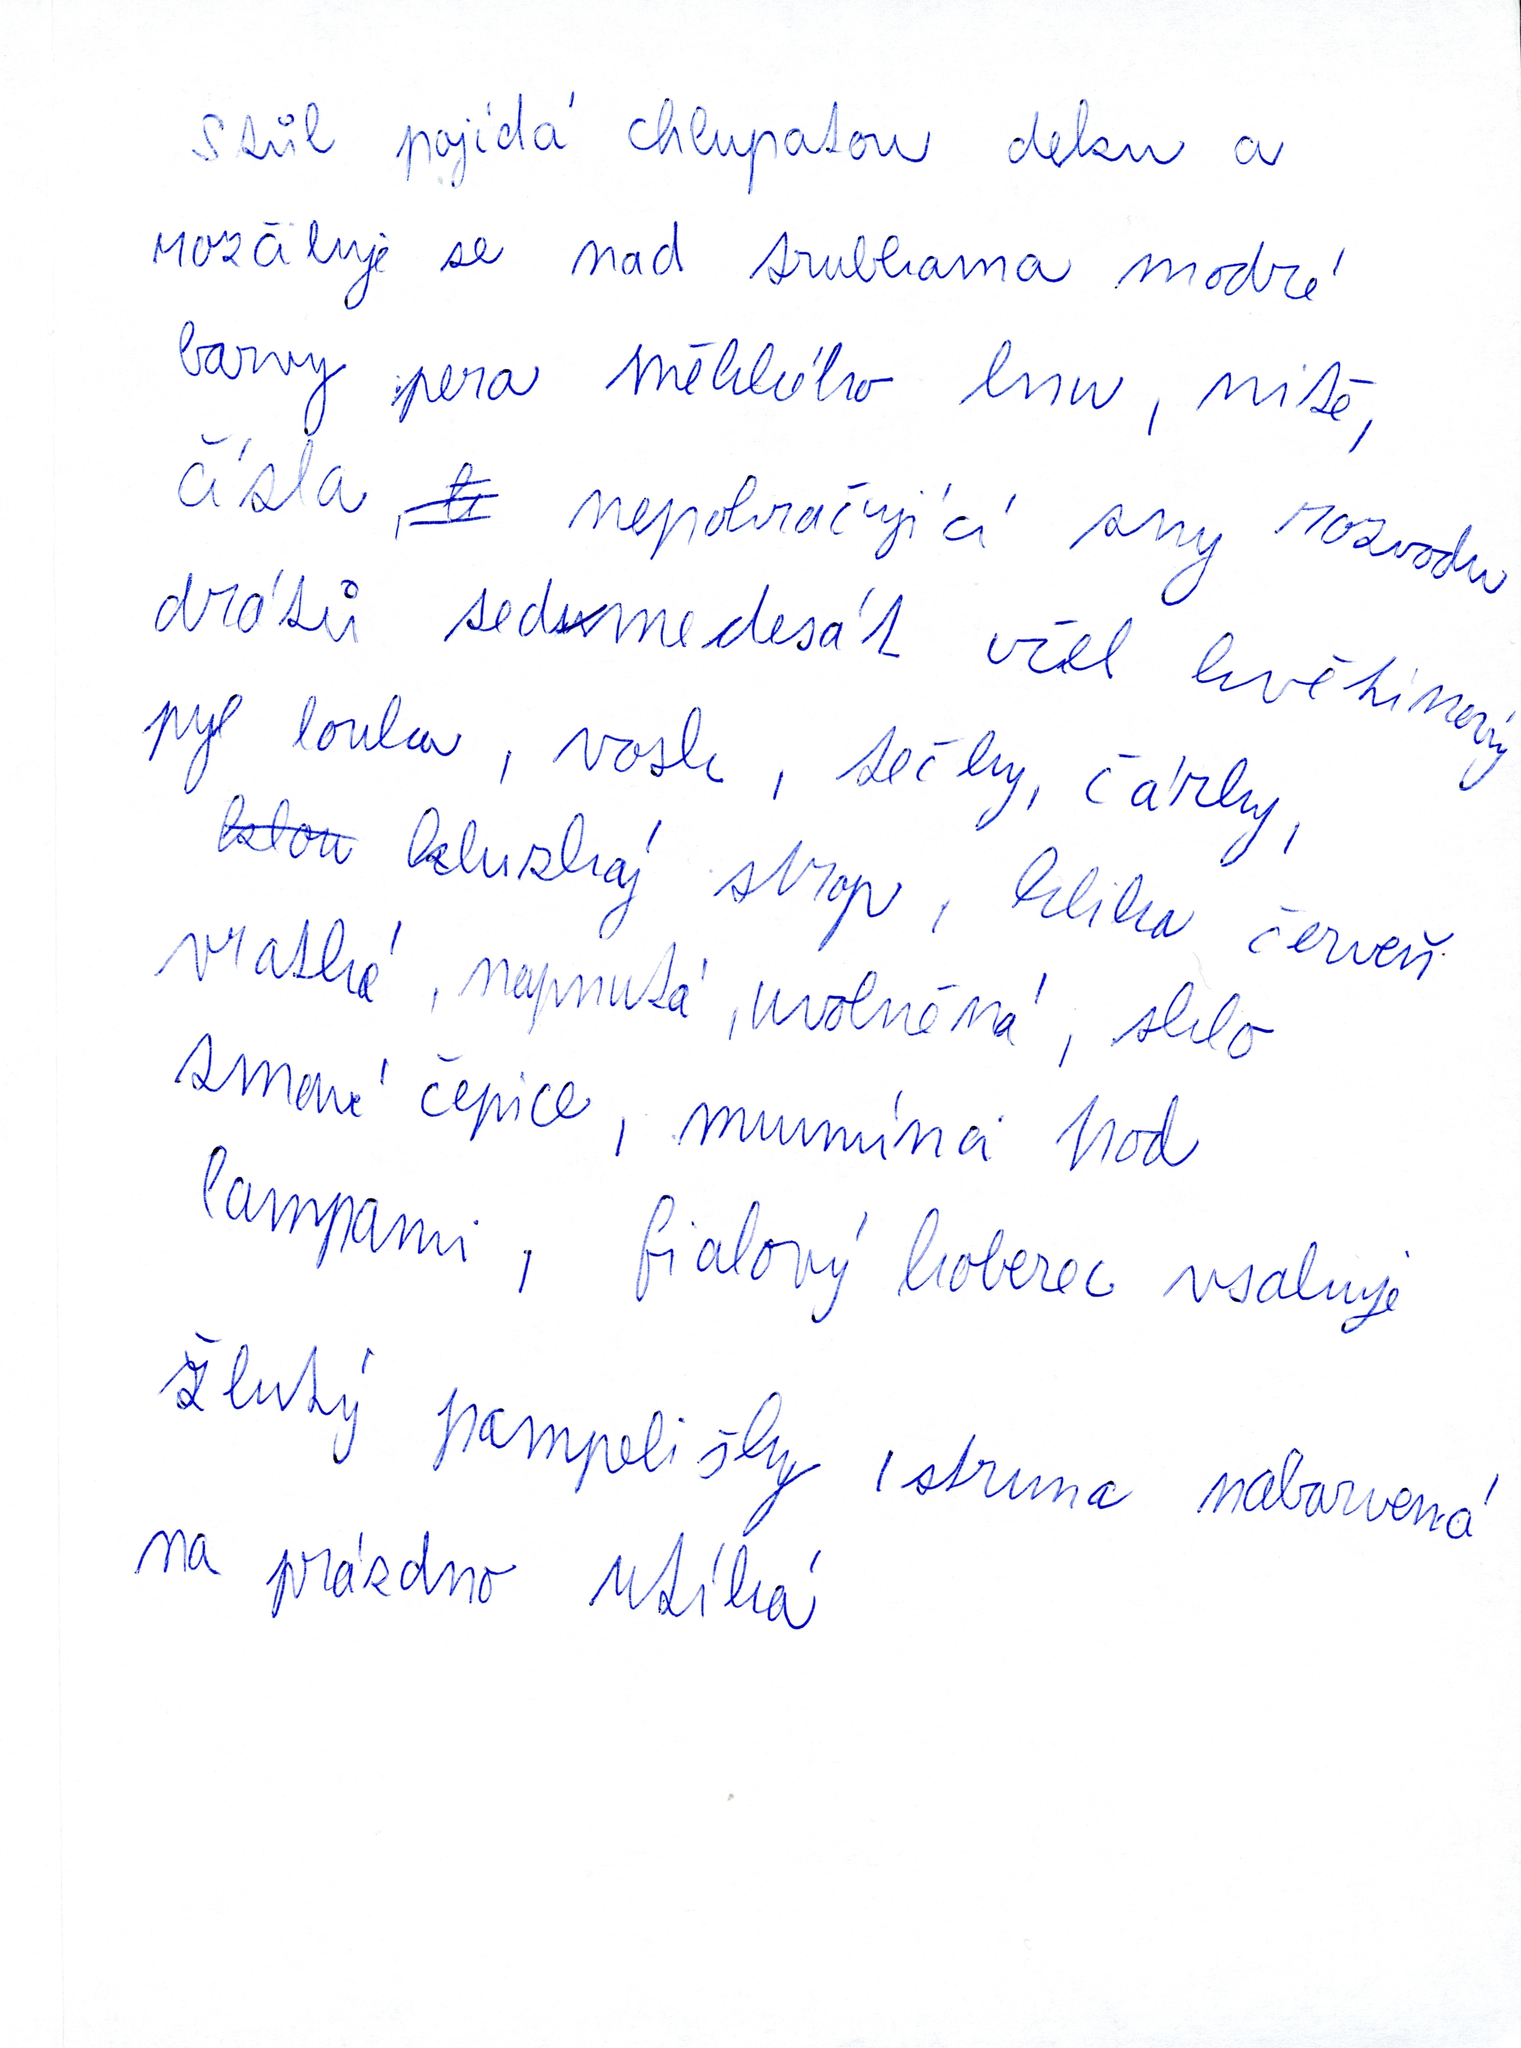 stůl pojídá chlupatou deku a
rozčiluje se nad trubkama modré
barvy pera měkkého lnu, nitě,
čísla, nepokračující sny rozvodu
drátů sedmedesát včel květinový
pyl louka, vosk, tečky, čárky,
kluzkej strop, klika červeň
vratká, napnutá, uvolněná, sklo
tmavé čepice, mumínci pod
lampami, fialový koberec vsakuje
žlutý pampelišky, struna nabarvená
na prázdno utíká